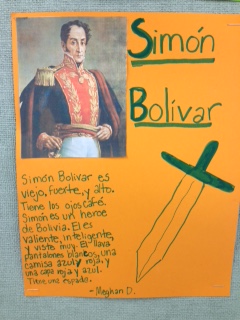 Simón
Bolívar
Simón Bolívar es
viejo, fuerte, y alto.
Tiene los ojos café.
Simón es un heroe
de Bolivia. El es
valiente, inteligente,
y viste muy. El llava
pantalones blancos, una
camisa azul y roja, y
una capa roja y azul.
Tiene una espada.
- Meghan D.